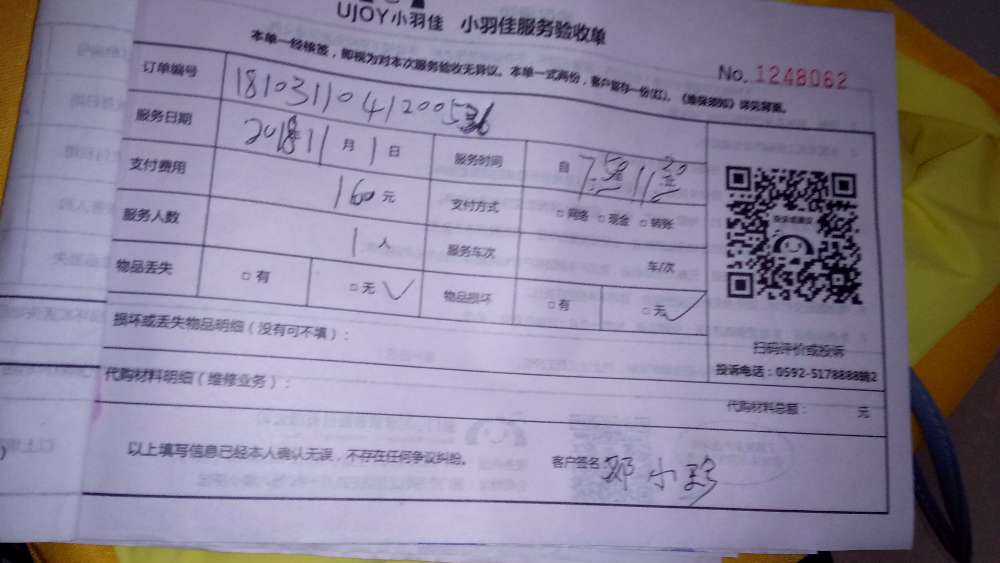 UJOY小羽佳 小羽佳服务验收单
本单一经核签，即视为对本次服务验收无异议。本单一式两份，客户留存一份(红)。《维保须知》详见背面。
No. 1248062
订单编号 181031104120053
服务日期 2018 11月1日 服务时间 自 7 50 11 20
支付费用 160元 支付方式 □网络 □现金 □转账
服务人数 1人 服务车次 车/次
物品丢失 □有 □无 ✓ 物品损坏 □有 □无 ✓
损坏或丢失物品明细（没有可不填）：
扫码评价或投诉
投诉电话：0592-5178888转2
代购材料明细（维修业务）：
代购材料总额： 元
以上填写信息已经本人确认无误，不存在任何争议纠纷。
客户签名 邓小珍